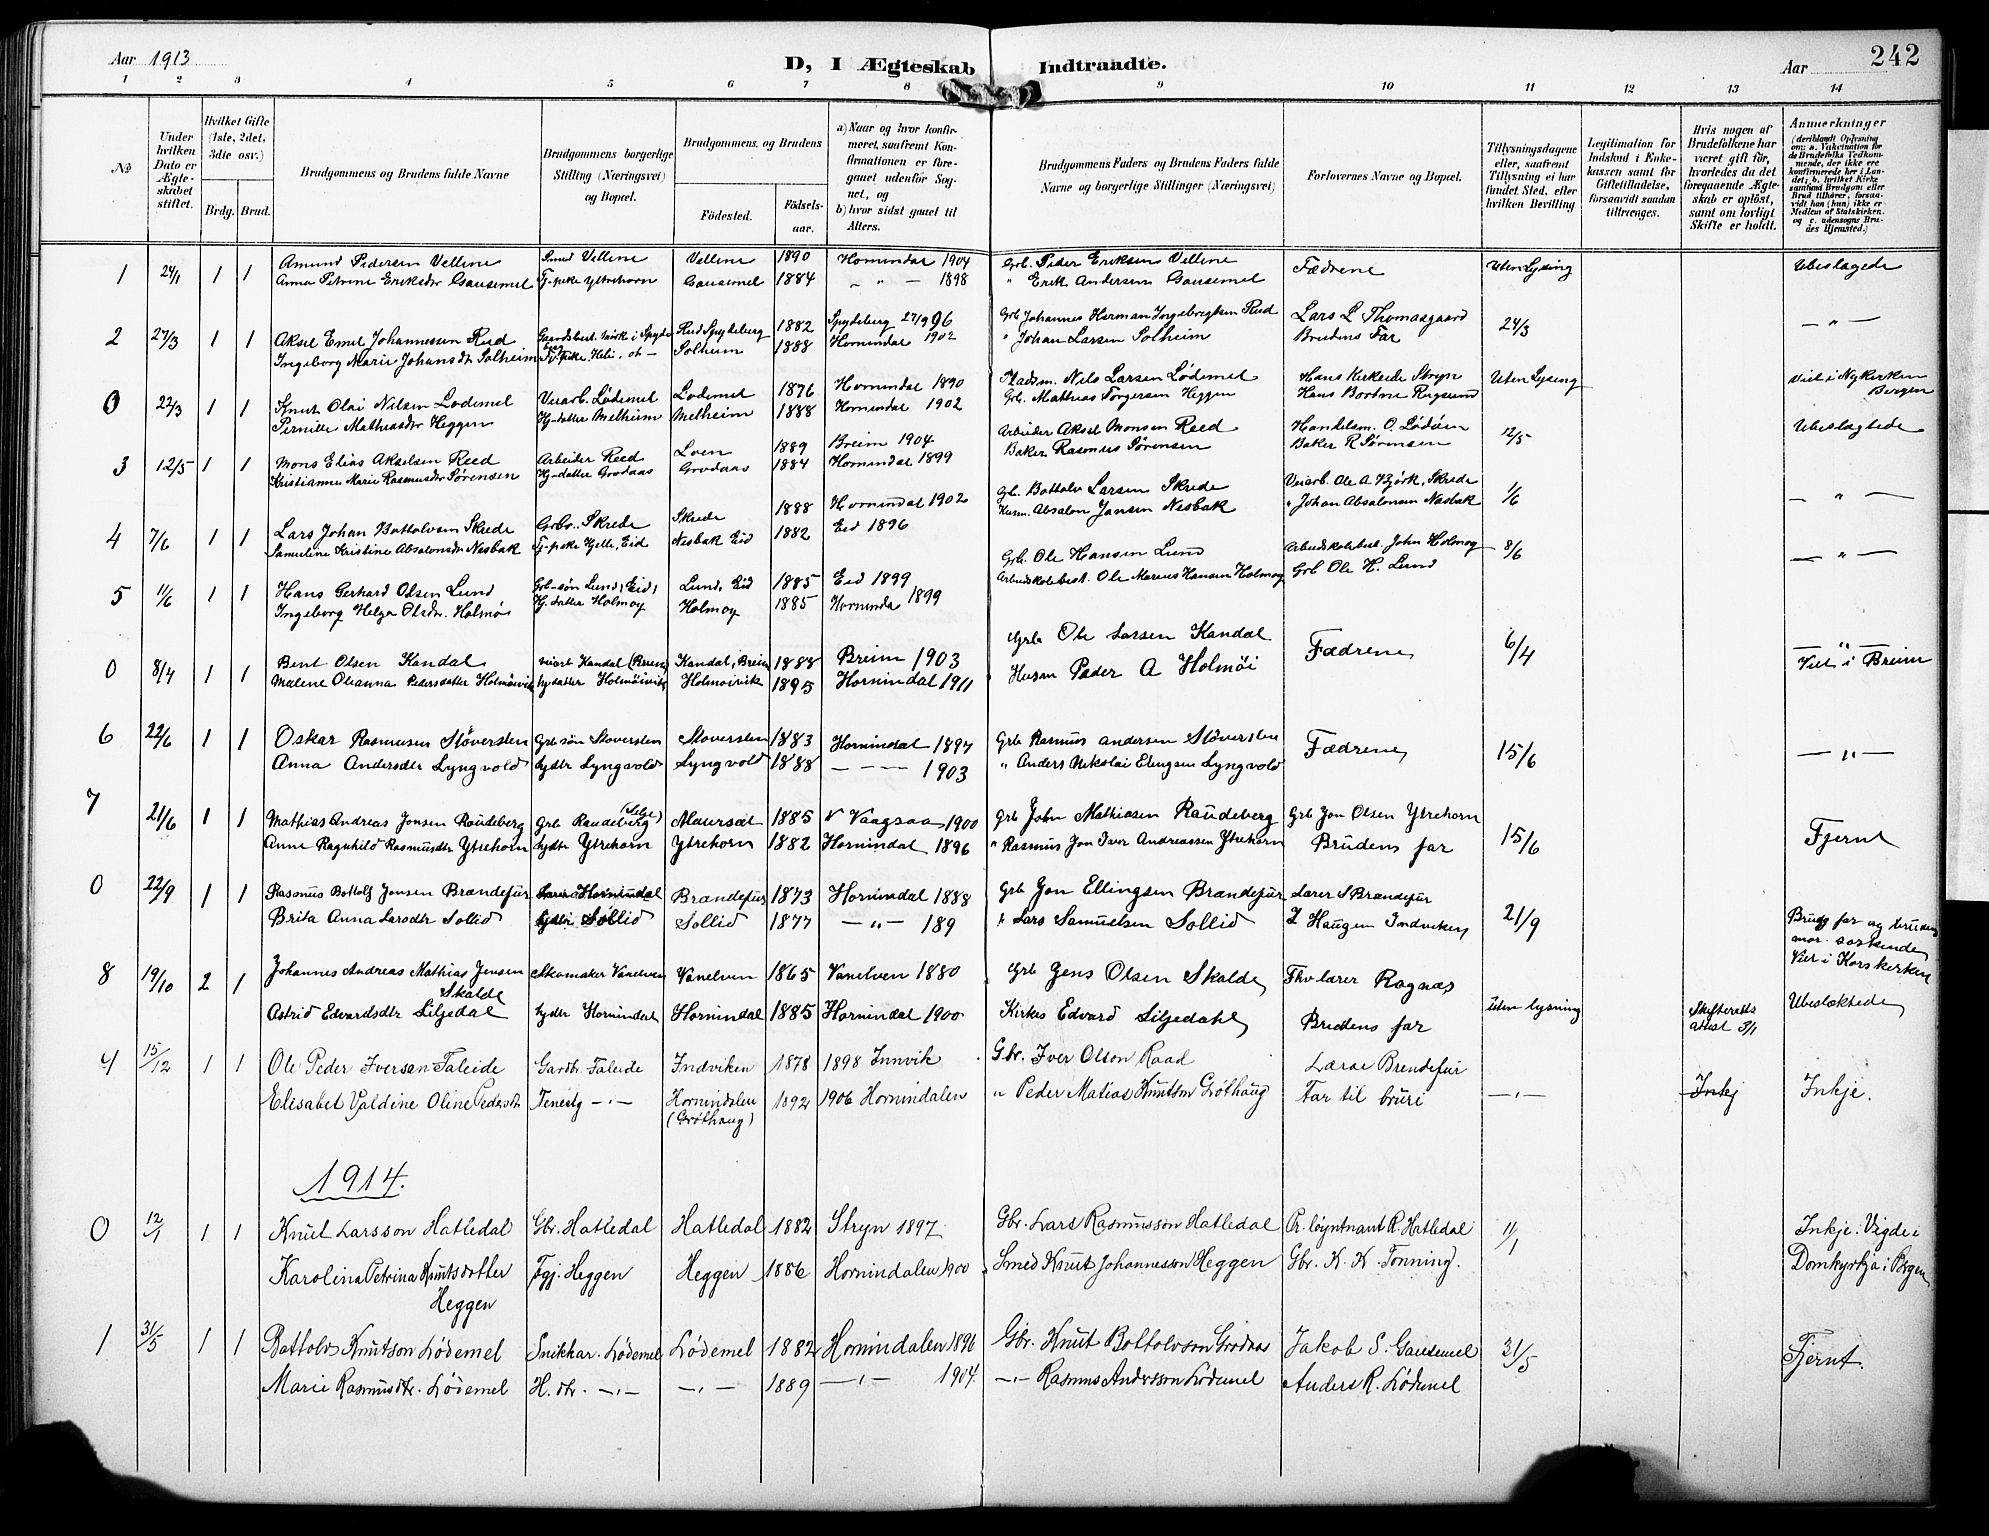 Aar 1913
D, I Ægteskab Indtraadte.
Aar
242
1 2 3 4 5 6 7 8 9 10 11 12 13 14
No
Under hvilken Dato er Ægteskabet stiftet.
Hvilket Gifte (1ste, 2det, 3die osv.)
Brdg. Brud.
Brudgommens og Brudens fulde Navne
Brudgommens borgerlige Stilling (Næringsvei) og Bopæl.
Brudgommens, og Brudens
Födested.
Födselsaar.
a) Naar og hvor konfirmeret, saafremt Konfirmationen er foregaaet udenfor Sognet, og
b) hvor sidst gaaet til Alters.
Brudgommens Faders og Brudens Faders fulde Navne og borgerlige Stillinger (Næringsvei)
Forlovernes Navne og Bopæl.
Tillysningsdagene eller, saafremt Tillysning ei har fundet Sted, efter hvilken Bevilling
Legitimation for Indskud i Enkekassen samt for Giftetilladelse, forsaavidt saadan tiltrænges.
Hvis nogen af Brudefolkene har været gift før, hvorledes da det foregaaende Ægteskab er opløst, samt om lovligt Skifte er holdt.
Anmerkninger
(deriblandt Oplysning om: a. Vakcination for de Brudefolks Vedkommende, der ikke ere konfirmerede her i Landet; b. hvilket Kirkesamfund Brudgom eller Brud tilhører, forsaavidt han (hun) ikke er Medlem af Statskirken, og c. udensogns Brudes Hjemsted.)
1 24/1 1 1 Amund Pedersen Vellene Smed Vellene Vellene 1890 Hornindal 1904 Grb. Peder Eriksen Vellene Fædrene Uten Lysing Ubeslagtede
Anna Petrine Eriksdr Gausemel Tj-pike Ytrehorn Gausemel 1884 - " - 1898 " Erik Andersen Gausemel
2 27/3 1 1 Aksel Emil Johannessen Rud Gaardsbest. Mørk i Spydeberg Rud Spydeberg 1882 Spydeberg 27/9 96 Grb Johannes Herman Ingebregtsen Rud Lars L Thomasgaard 24/3 - " -
Ingeborg Marie Johansdr Solheim Tj-pike Solheim 1888 Hornindal 1902 " Johan Larsen Solheim Brudens Far
0 22/3 1 1 Knut Olai Nilsen Lødemel Veiarb. Lødemel Lødemel 1876 Hornindal 1890 Pladsm. Nils Larsen Lødemel Hans Kirkeide Stryn Uten Lysing Viet i Nykirken Bergen
Pernille Mathiasdr Heggen Hj-datter Melheim Melheim 1888 Hornindal 1902 Grb. Mathias Torgersen Heggen Hans Bortne Rugsund
3 12/5 1 1 Mons Elias Akselsen Reed Arbeider Reed Loen 1889 Breim 1904 Arbeider Aksel Monsen Reed Handelsm. O. Lødøen 12/5 Ubeslagtede
Kristianne Marie Rasmusdr Sørensen Hj-datter Grodaas Grodaas 1884 Hornindal 1899 Baker Rasmus Sørensen Baker R Sørensen
4 7/6 1 1 Lars Johan Bottolvsen Skrede Grbr. Skrede Skrede 1888 Hornindal 1902 Gb. Bottolv Larsen Skrede Veiarb. Ole A Bjørk, Skrede 1/6 - " -
Samuline Kristine Absalonsdr Nesbak Tj-pike Hjelle, Eid Nesbak Eid 1882 Eid 1896 Husm. Absalon Jansen Nesbak " Johan Absalonsen Nesbak
5 11/6 1 1 Hans Gerhard Olsen Lund Grb-søn Lund, Eid, Lund, Eid 1885 Eid 1899 Grb. Ole Hansen Lund Arbeidskolebest. John Holmøy 8/6 - " -
Ingeborg Helga Olsdr. Holmø Hj. datter Holmøy Holmøy 1885 Hornindal 1899 Arbeidskolebest. Ole Marius Hansen Holmøy Grb Ole H. Lund
0 8/4 1 1 Bent Olsen Kandal veiarb Kandal (Breim) Kandal, Breim 1888 Breim 1903 Grb Ole Larsen Kandal Fædrene 6/4 - " -
Malene Olianna Pedersdatter Holmøivik hjdatter Holmøivik Holmøivik 1895 Hornindal 1911 Husm Peder A Holmøi Viet i Breim
6 22/6 1 1 Oskar Rasmusen Støversten Grb søn Støversten Støversten 1883 Hornindal 1897 Grb Rasmus Andersen Støversten Fædrene 15/6 - " -
Anna Andersdtr Lyngvold hjdtr Lyngvold Lyngvold 1888 - - - 1903 " Anders Nikolai Elingsen Lyngvold
7 21/6 1 1 Mathias Andreas Jonsen Raudeberg Grb Raudeberg (Selje) Maursæt 1885 N Vaagsøa 1900 Grb John Mathiasen Raudeberg Grb Jon Olsen Ytrehorn 15/6 Fjernt
Anne Ragnhild Rasmusdtr Ytrehorn hjdtr Ytrehorn Ytrehorn 1882 Hornindal 1896 " Rasmus Jon Iver Andreassen Ytrehorn Brudens far
0 22/9 1 1 Rasmus Bottolf Jonsen Brændefur Lærer Hornindal Brændefur 1873 Hornindal 1888 Grb Jon Ellingsen Brændefur Lærer S Brændefur 21/9 Brudg far og brudens mor søskende
Brita Anna Larsdtr Sollid hjdtr Sollid Sollid 1877 - " - 189 " Lars Samuelsen Sollid Z Haugen Indviken Viet i Korskirken
8 19/10 2 1 Johannes Andreas Mathias Jensen Skalde Skomaker Vanelven Vanelven 1865 Vanelven 1880 Grb Jens Olsen Skalde Fhv lærer Rognæs uten lysning Skifteretts attest Ubeslektede
Astrid Edvardsdtr Siljedal hjdtr Hornindal Hornindal 1885 Hornindal 1900 Kirkes Edvard Siljedahl Brudens far
9 15/12 1 1 Ole Peder Iversen Faleide Gardbr. Faleide Indviken 1878 1898 Innvik Gbr. Iver Olson Raad Lærar Brendefur - " - Inkj Inkje.
Elisabet Valdine Oline Pedersdtr Tenestg - " - Hornindalen (Grøthaug) 1892 1906 Hornindalen " Peder Matias Knutson Grøthaug Far til bruri
1914.
0 12/1 1 1 Knut Larsson Hatledal Gbr. Hatledal Hatledal 1882 Stryn 1897 Gbr. Lars Rasmusson Hatledal Pr. løytnant R. Hatledal 11/1 Inkje. Vigde i
Karolina Petrina Knutsdotter Heggen Tgj. Heggen Heggen 1886 Hornindalen 1900 Smed Knut Johannesson Heggen Gbr. K. K. Tonning. Domkyrkja i Bergen
1 31/5 1 1 Bottolv Knutson Lødemel Snikkar. Lødemel Lødemel 1882 Hornindalen 1896 Gbr. Knut Boltolvson Grodaas Jakob S. Gausemel 31/5 Fjernt.
Marie Rasmusdtr. Lødemel H. dtr. - " - - " - 1889 - " - 1904. - " - Rasmus Andersson Lødemel Anders R. Lødemel